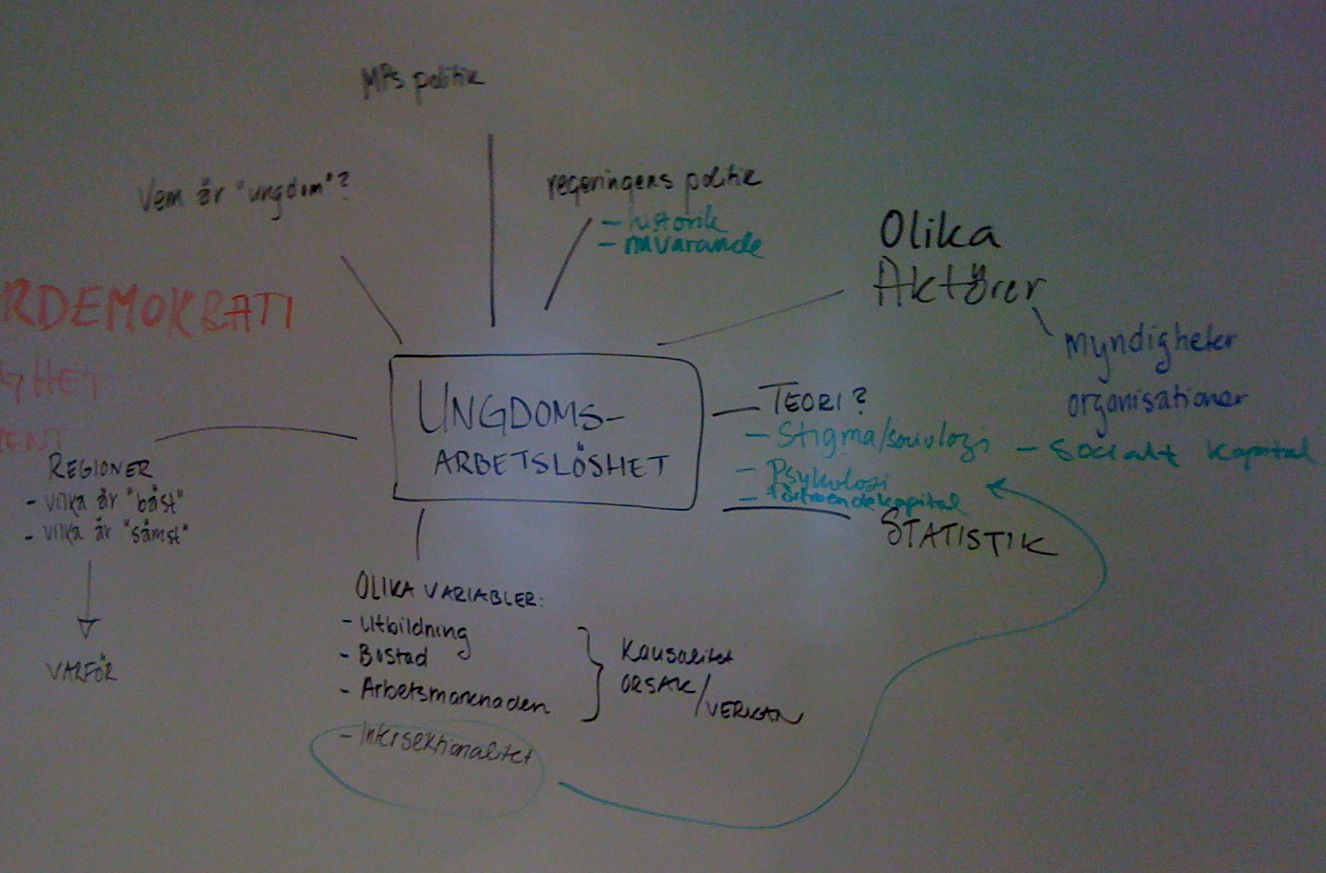 MPs politik
Vem är "ungdom"?
regeringens politik
- historik
- nuvarande
Olika
Aktörer
myndigheter
organisationer
RDEMOKRATI
GHET
ENT
UNGDOMS-
ARBETSLÖSHET
TEORI?
- Stigma/sociologi - Socialt kapital
- Psykologi
- förtroendekapital
STATISTIK
REGIONER
- vilka är "bäst"
- vilka är "sämst"
VARFÖR
OLIKA VARIABLER:
- Utbildning
- Bostad
- Arbetsmarknaden
- Intersektionalitet
Kausalitet
ORSAK/
VERKAN